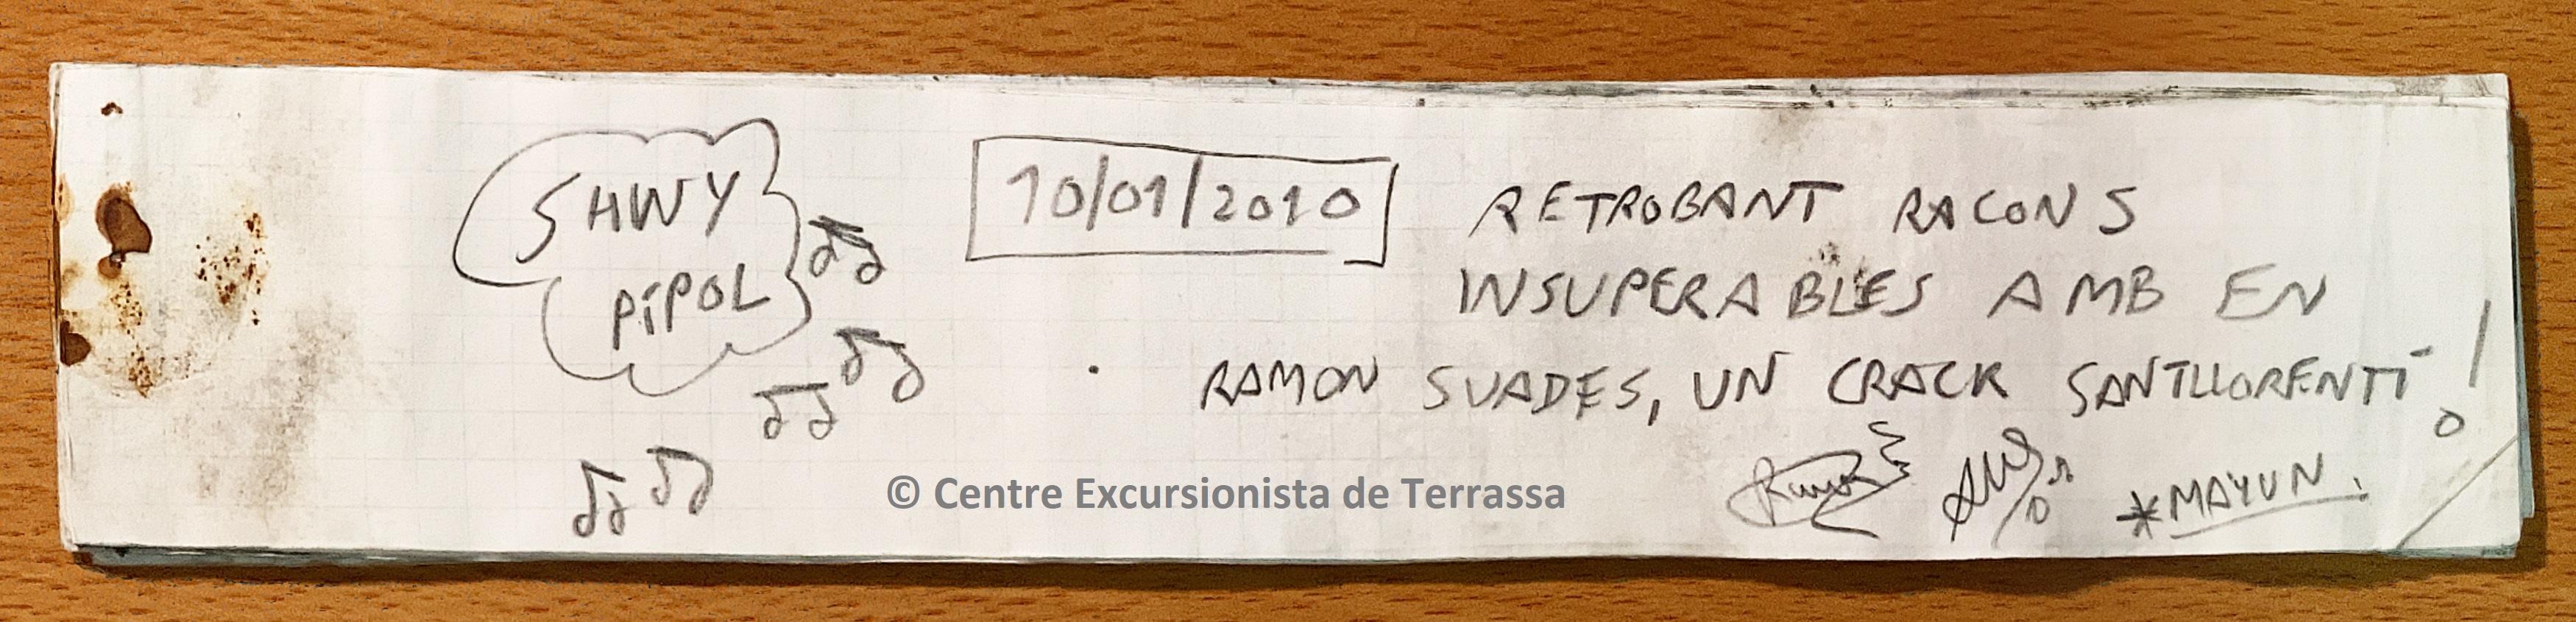 SHWY
PÍPOL
10/01/2010
RETROBANT RACONS
INSUPERABLES AMB EN
RAMON SUADES, UN CRACK SANTLLORENTÍ!
*MAYUN.
© Centre Excursionista de Terrassa